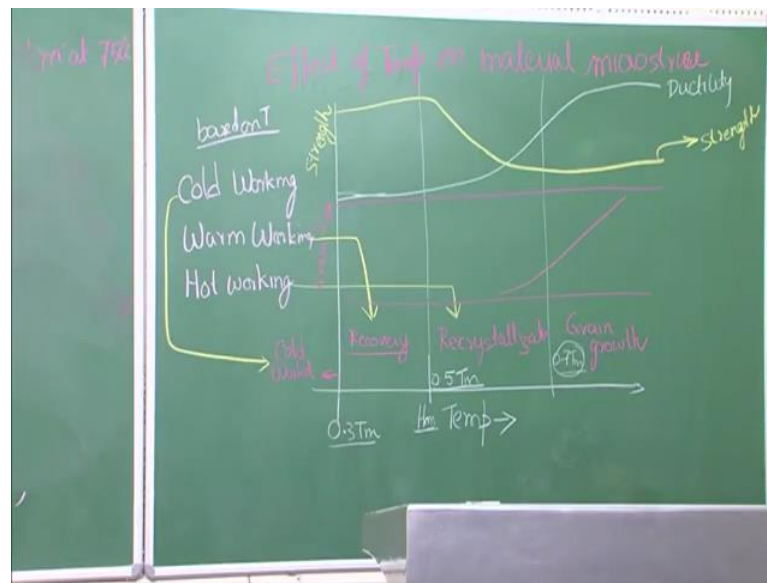 Effect of Temp on material microstruc
Ductility
Strength
Strength
based on T
Cold Working
Warm Working
Hot Working
Cold
Recovery
Recrystallizat
Grain
growth
0.7Tm
0.5Tm
0.3Tm
Temp →